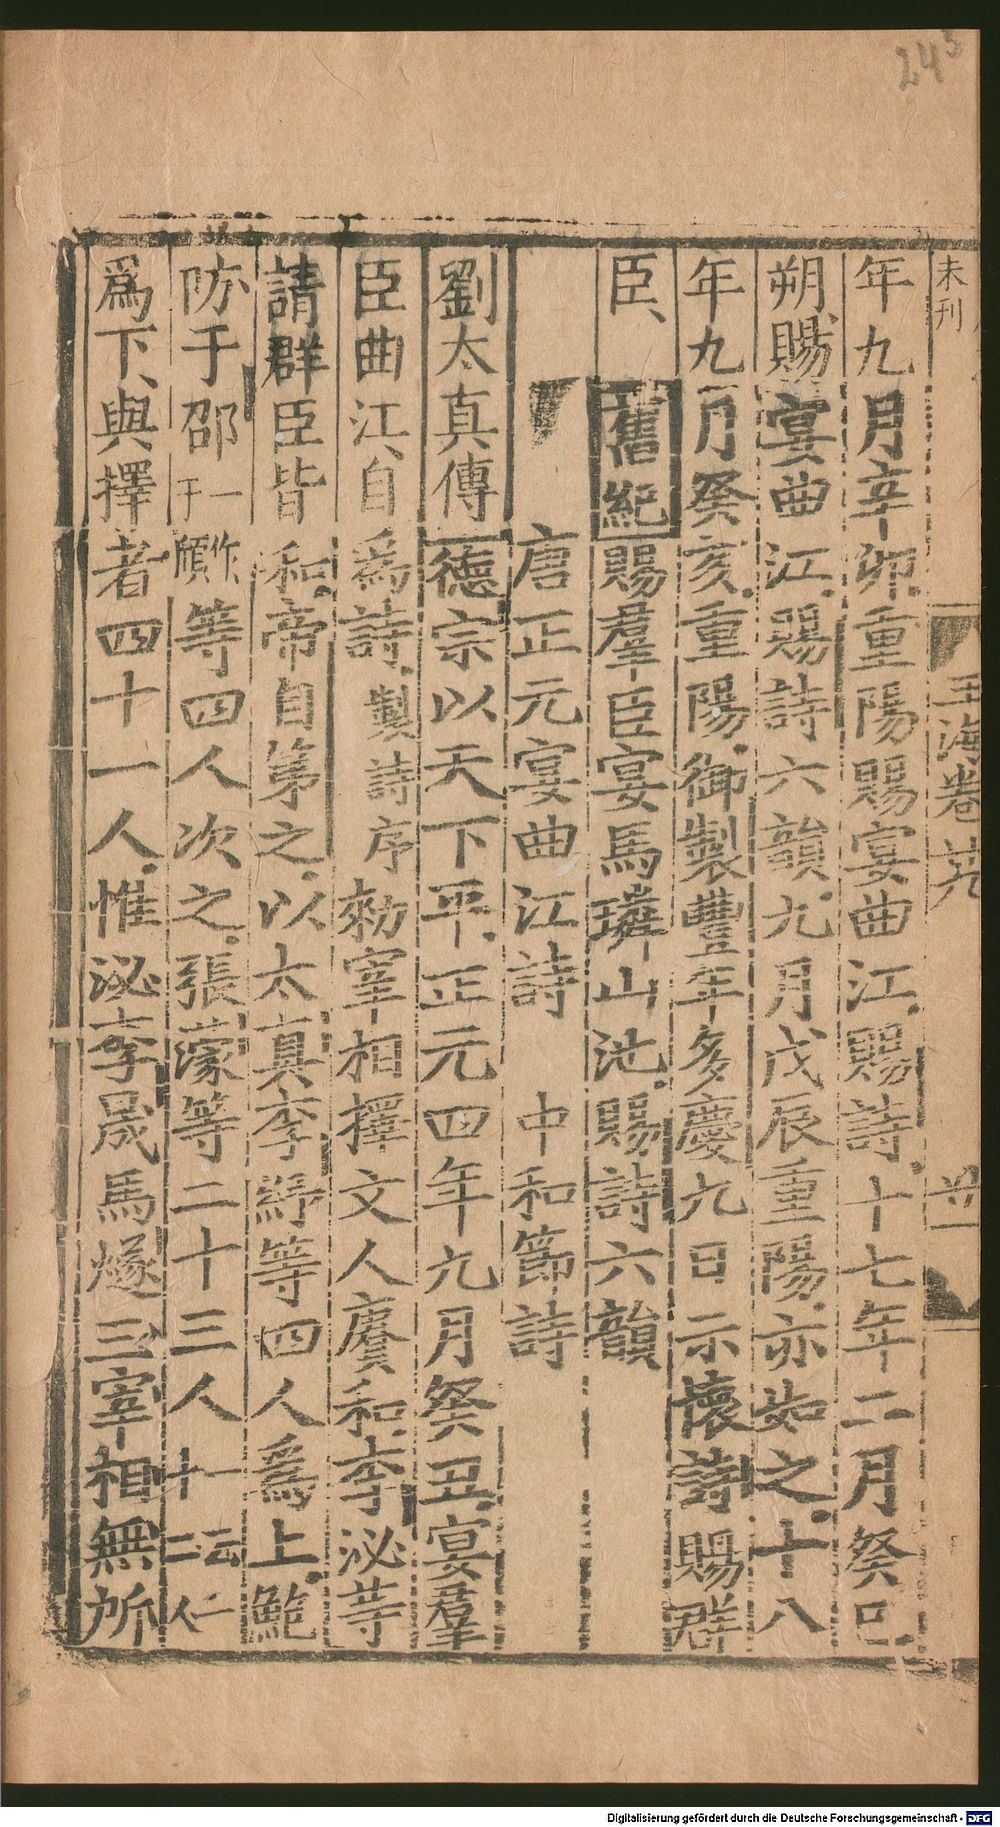 243
未刊
玉海卷廿九
廿一
年九月辛卯重陽賜宴曲江賜詩十七年二月癸巳
朔賜宴曲江賜詩六韻九月戊辰重陽亦如之十八
年九月癸亥重陽御製豐年多慶九日示懷詩賜群
臣舊紀賜羣臣宴馬璘山池賜詩六韻
唐正元宴曲江詩 中和節詩
劉太真傳德宗以天下平正元四年九月癸丑宴羣
臣曲江自爲詩製詩序勑宰相擇文人賡和李泌等
請群臣皆和帝自第之以太真李紓等四人爲上鮑
防于邵一作干頎等四人次之張濛等二十三人一云二十二人
爲下與擇者四十一人惟泌李晟馬燧三宰相無所
Digitalisierung gefördert durch die Deutsche Forschungsgemeinschaft - DFG